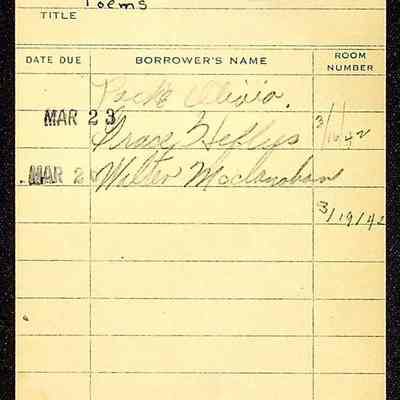 Poems
TITLE
DATE DUE BORROWER'S NAME ROOM NUMBER
Olivia.
MAR 23 Grace Heflys 3/16/42
MAR 2 Walter Mcclanahan
3/19/42